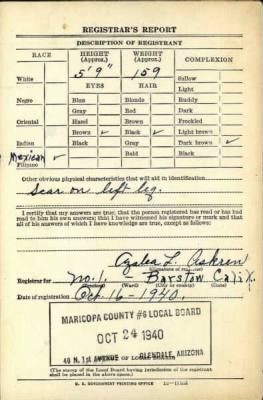 REGISTRAR'S REPORT
DESCRIPTION OF REGISTRANT
RACE HEIGHT (Approx.) WEIGHT (Approx.) COMPLEXION
White 5' 9" 159 Sallow
EYES HAIR Light
Negro Blue Blonde Ruddy
Gray Red Dark
Oriental Hazel Brown Freckled
Brown ✓ Black ✓ Light brown
Indian Black Gray Dark brown ✓
Mexican ✓ Bald Black
Filipino
Other obvious physical characteristics that will aid in identification
Scar on left leg.
I certify that my answers are true; that the person registered has read or has had
read to him his own answers; that I have witnessed his signature or mark and that
all of his answers of which I have knowledge are true, except as follows:
Azalea L. Askren
Registrar for No. 1. Barstow Calif.
(Ward) (City or county) (State)
Date of registration Oct. 16 - 1940.
MARICOPA COUNTY #6 LOCAL BOARD
OCT 24 1940
40 N. 1st AVENUE GLENDALE, ARIZONA
(The stamp of the Local Board having jurisdiction of the registrant
shall be placed in the above space.)
U. S. GOVERNMENT PRINTING OFFICE